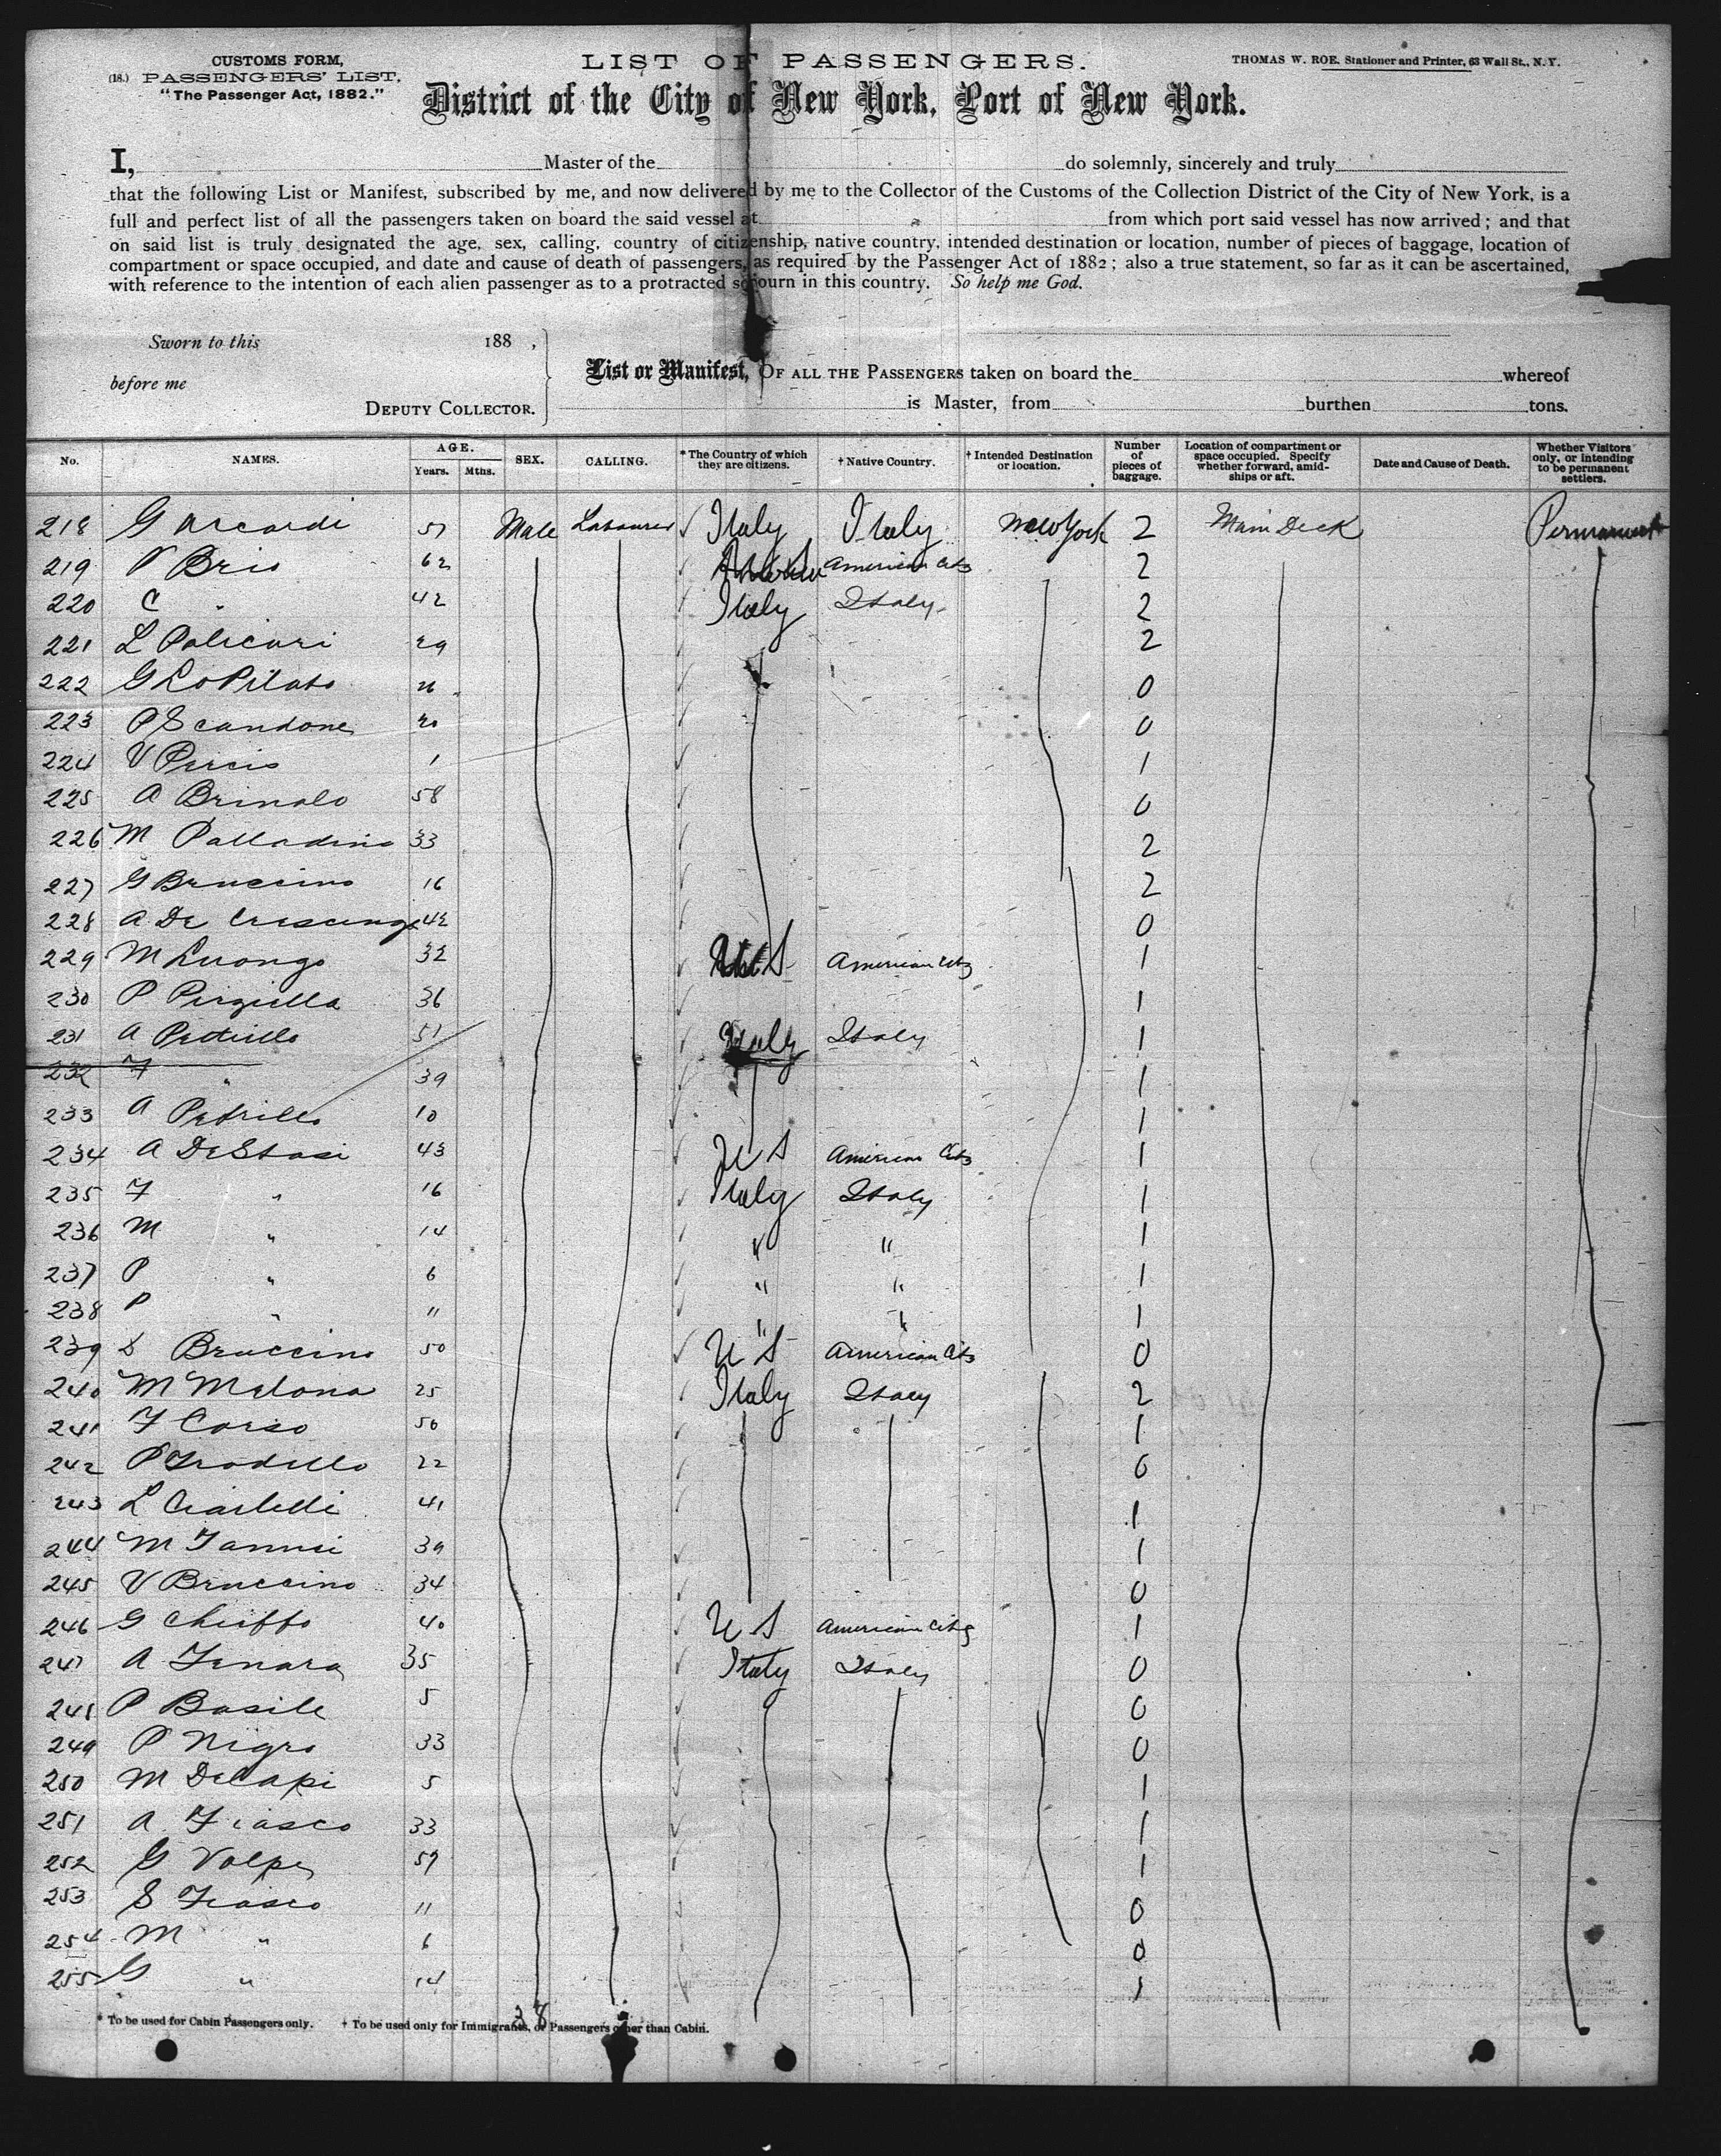 CUSTOMS FORM,
(18.) PASSENGERS' LIST,
"The Passenger Act, 1882."
LIST OF PASSENGERS.
THOMAS W. ROE, Stationer and Printer, 63 Wall St., N.Y.
District of the City of New York, Port of New York.
I, Master of the do solemnly, sincerely and truly
that the following List or Manifest, subscribed by me, and now delivered by me to the Collector of the Customs of the Collection District of the City of New York, is a
full and perfect list of all the passengers taken on board the said vessel at from which port said vessel has now arrived; and that
on said list is truly designated the age, sex, calling, country of citizenship, native country, intended destination or location, number of pieces of baggage, location of
compartment or space occupied, and date and cause of death of passengers, as required by the Passenger Act of 1882; also a true statement, so far as it can be ascertained,
with reference to the intention of each alien passenger as to a protracted sojourn in this country. So help me God.
Sworn to this 188 ,
before me
DEPUTY COLLECTOR.
List or Manifest, OF ALL THE PASSENGERS taken on board the whereof
is Master, from burthen tons.
No. NAMES. AGE. Years. Mths. SEX. CALLING. * The Country of which they are citizens. † Native Country. † Intended Destination or location. Number of pieces of baggage. Location of compartment or space occupied. Specify whether forward, amidships or aft. Date and Cause of Death. Whether Visitors only, or intending to be permanent settlers.
218 G Arcardi 51 Male Labourer Italy Italy New York 2 Main Deck Permanent
219 V Brio 62 American Citz 2
220 C " 42 Italy Italy 2
221 L Policari 29 2
222 G LoPilato 0
223 P Scandone 20 0
224 V Percio 1 1
225 A Brinolo 58 0
226 M Palladino 33 2
227 G Bruccino 16 2
228 A De Crescenzo 42 0
229 M Luongo 32 U S American Citz 1
230 P Pirziella 36 1
231 A Petrillo 51 Italy Italy 1
232 F " 39 1
233 A Petrillo 10 1
234 A DeStasi 43 U S American Citz 1
235 F " 16 Italy Italy 1
236 M " 14 " " 1
237 P " 6 " " 1
238 P " 11 " " 1
239 S Bruccino 50 U S American Citz 0
240 M Melona 25 Italy Italy 2
241 F Corso 50 1
242 P 22 0
243 L Ciarletti 41 1
244 M Iannui 39 1
245 V Bruccino 34 0
246 G Chieffo 40 U S American Citz 1
247 A Fenara 35 Italy Italy 0
248 P Basile 5 0
249 P Nigro 33 0
250 M DeCapi 5 1
251 A. Fiasco 33 1
252 G Volpe 59 1
253 S Fiasco 11 0
254 M " 6 0
255 G " 14 1
38
* To be used for Cabin Passengers only. † To be used only for Immigrants, or Passengers other than Cabin.